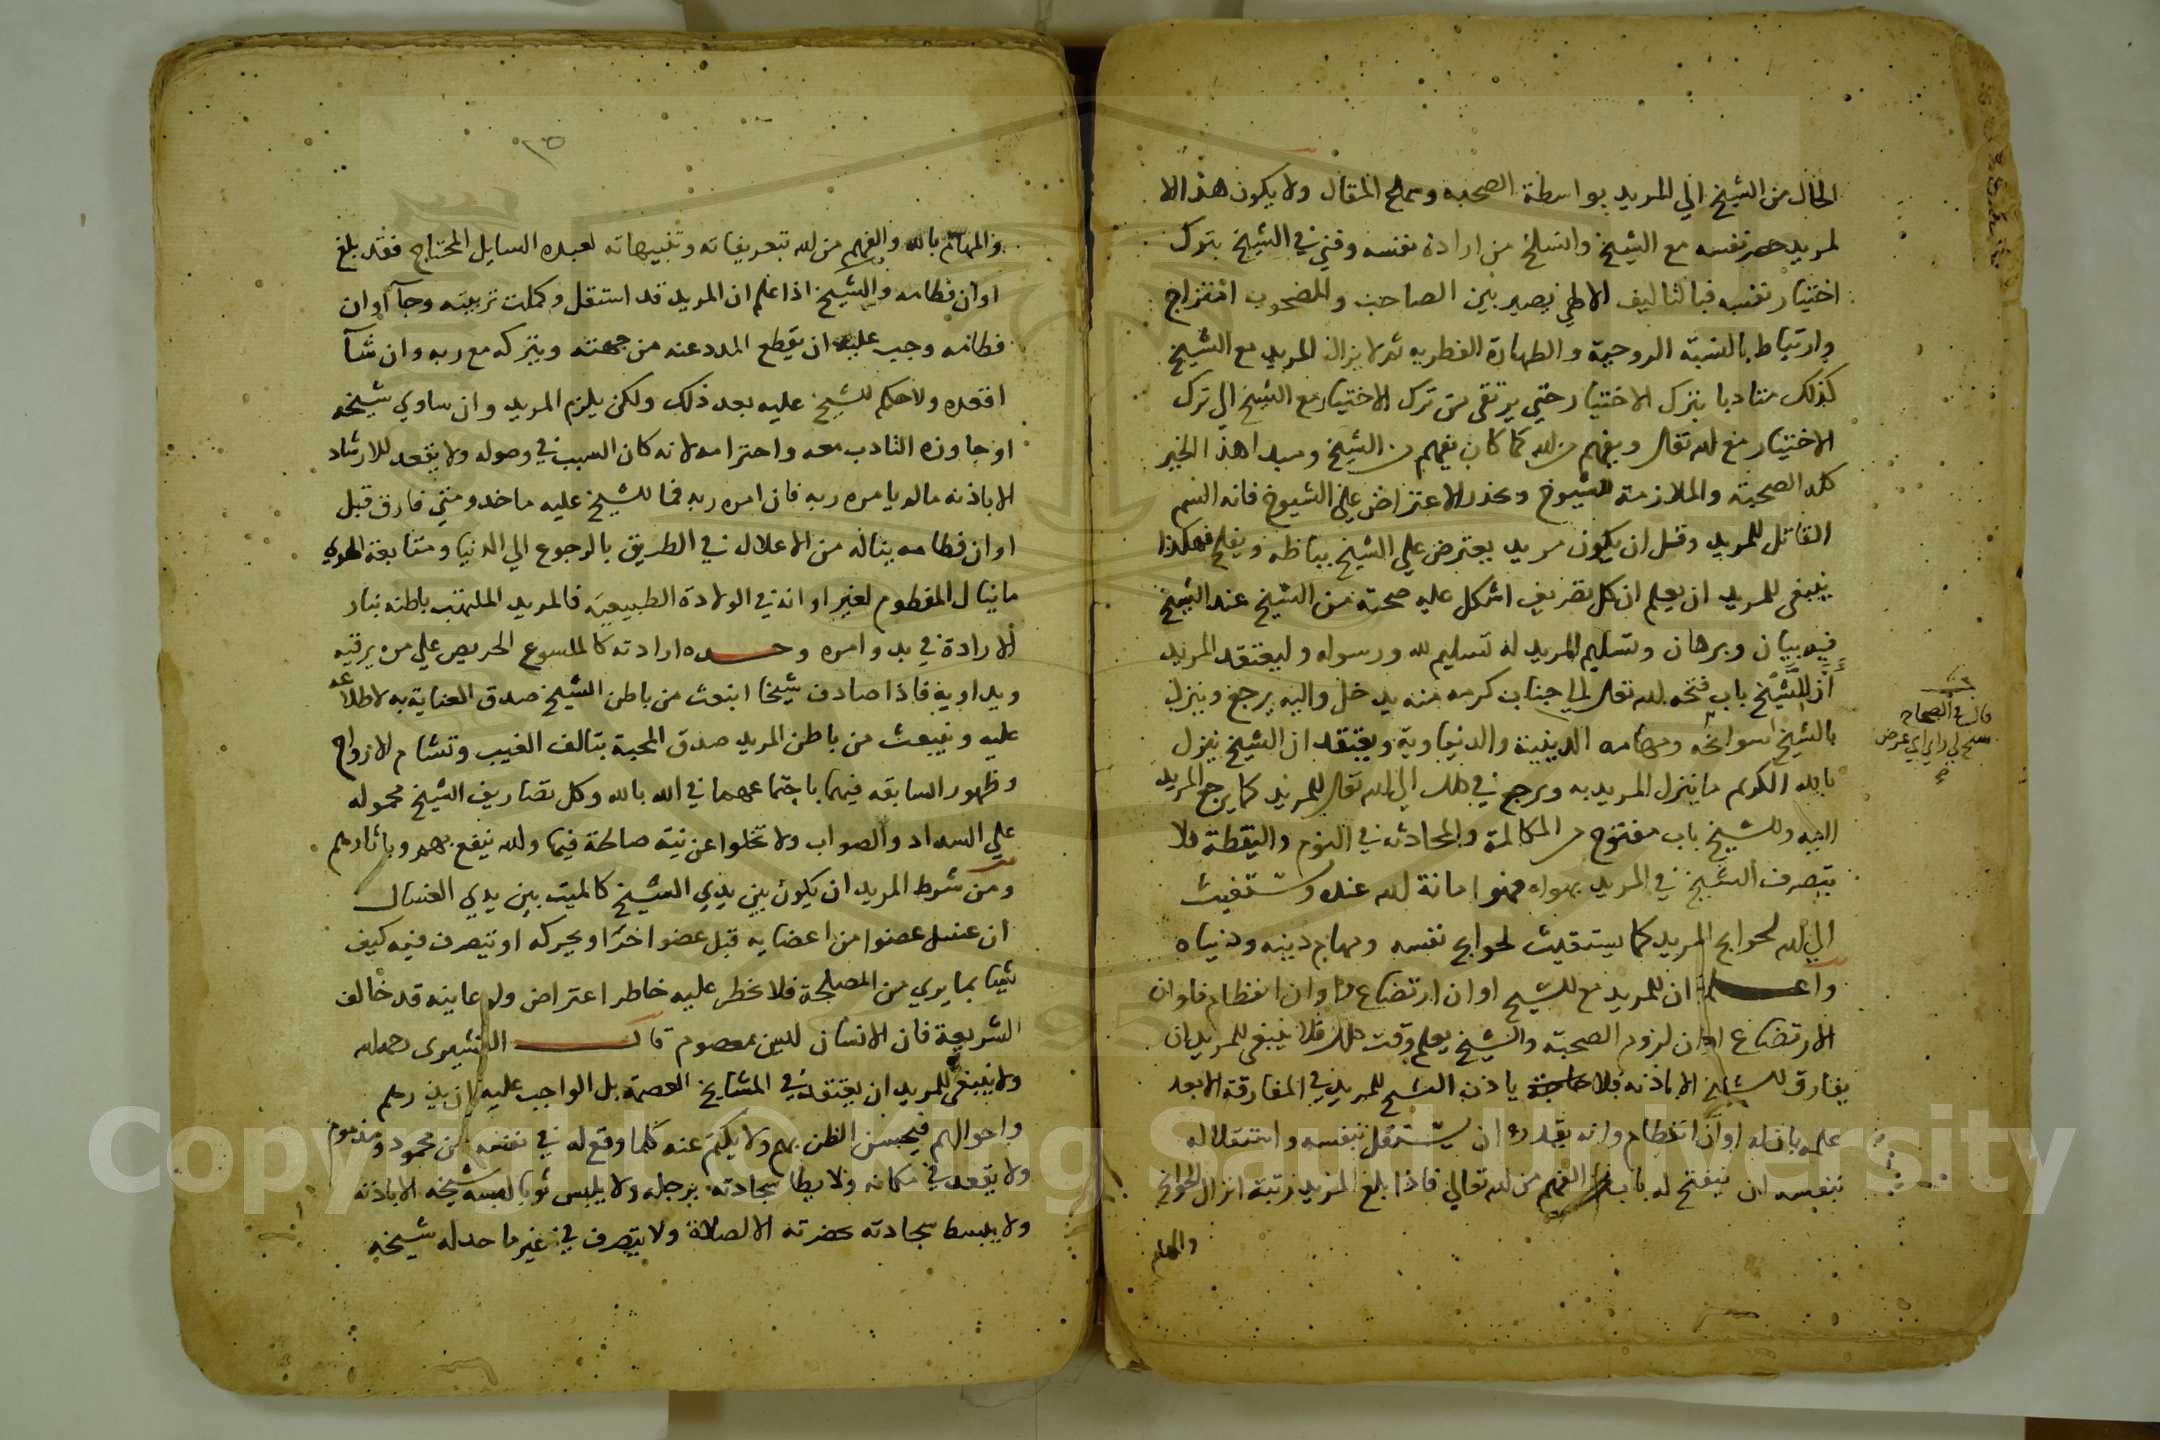 الحال من الشيخ الي المريد بواسطة الصحبه وسماع المقال ولا يكون هذا الا
لمريد حصر نفسه مع الشيخ وانسلخ من ارادة نفسه وفني في الشيخ بترك
اختيار نفسه فبالتاليف الالهي يصير بين الصاحب والمصحوب امتزاج
وارتباط بالنسبة الروحية والطهارة الفطريه ثم لا يزال المريد مع الشيخ
كذلك متادبا بترك الاختيار حتي يرتقي من ترك الاختيار مع الشيخ الي ترك
الاختيار مع الله تعالى ويفهم من الله كما كان يفهم من الشيخ ومبدا هذا الخير
كله الصحبة والملازمة للشيوخ وبحذر الاعتراض علي الشيوخ فانه السم
القاتل للمريد وقل ان يكون مريد يعترض علي الشيخ بباطنه ويفلح فهكذا
ينبغي للمريد ان يعلم ان كل تصريف اشكل عليه صحته من الشيخ عند الشيخ
فيه بيان وبرهان وتسليم المريد له تسليم لله ورسوله وليعتقد المريد
ان الشيخ باب فتحه الله تعالى الي جناب كرمه منه يدخل واليه يرجع وينزل
بالشيخ سوانحه ومهامه الدينية والدنياوية ويعتقد ان الشيخ ينزل
بالله الكريم ما ينزل المريد به ويرجع في ذلك الي الله تعالى للمريد كما يرجع المريد
اليه وللشيخ باب مفتوح من المكالمة والمحادثه في النوم واليقظة فلا
يتصرف الشيخ في المريد بهواه فهو امانة لله عنده ويستغيث
الي الله لحوايج المريد كما يستغيث لحوايج نفسه ومهام دينه ودنياه
واعلم ان للمريد مع الشيخ اوان ارتضاع واوان انفطام فاوان
الارتضاع اوان لزوم الصحبة والشيخ يعلم وقت ذلك فلا ينبغي للمريد ان
يفارق الشيخ الا باذنه فلا ياذن الشيخ للمريد في المفارقة الا بعد
علمه بان له اوان انفطام وانه يقدر ان يستقل بنفسه واستقلاله
بنفسه ان ينفتح له باب الفهم من الله تعالي فاذا بلغ المريد رتبة انزال الحوايج
والمهام
قال في الصحاح
سنح لي راي اي عرض
والمهام بالله والفهم من الله تبعريفاته وتنبيهاته لعبده السايل المحتاج فقد بلغ
اوان فطامه والشيخ اذا علم ان المريد قد استقل وكملت تربيته وجآ اوان
فطامه وجب عليه ان يقطع المدد عنه من جهته ويتركه مع ربه وان شآ
اقعده ولا حكم للشيخ عليه بعد ذلك ولكن يلزم المريد وان ساوي شيخه
او جاوزه التادب معه واحترامه لانه كان السبب في وصوله ولا يقعد للارشاد
الا باذنه ما لم يامره ربه فان امره ربه فما للشيخ عليه ماخد ومتي فارق قبل
اوان فطامه يناله من الاعلال في الطريق بالرجوع الي الدنيا ومتابعة الهوي
ما ينال المفطوم لغير اوانه في الولادة الطبيعيه فالمريد الملتهب باطنه بنار
الارادة في بدو امره وحده ارادته كالملسوع الحريص علي من يرقيه
ويداويه فاذا صادف شيخا انبعث من باطن الشيخ صدق العناية به لاطلاعه
عليه وينبعث من باطن المريد صدق المحبة بتالف الغيب وتشام الارواح
وظهور السابقه فيهما باجتماعهما في الله بالله وكل تصاريف الشيخ محموله
علي السداد والصواب ولا تخلوا عن نية صالحة فيها والله ينفع بهم وباثارهم
ومن شرط المريد ان يكون بين يدي الشيخ كالميت بين يدي الغسال
ان غسل عضوا من اعضايه قبل عضو اخرا ويحركه او يتصرف فيه كيف
شيا بما يري من المصلحة فلا يخطر عليه خاطر اعتراض ولو عاينه قد خالف
الشريعة فان الانسان ليس بمعصوم قال القشيري رحمه الله
ولا ينبغي للمريد ان يعتقد في المشايخ العصمة بل الواجب عليه ان يذرهم
واحوالهم فيحسن الظن بهم ولا يكتم عنه كلما وقع له في نفسه من محمود ومذموم
ولا يقعد في مكانه ولا يطا سجادته برجله ولا يلبس ثوبا لبسه شيخه الا باذنه
ولا يبسط سجادته بحضرته الا لصلاة ولا يتصرف في غير ما حد له شيخه
Copyright © King Saud University